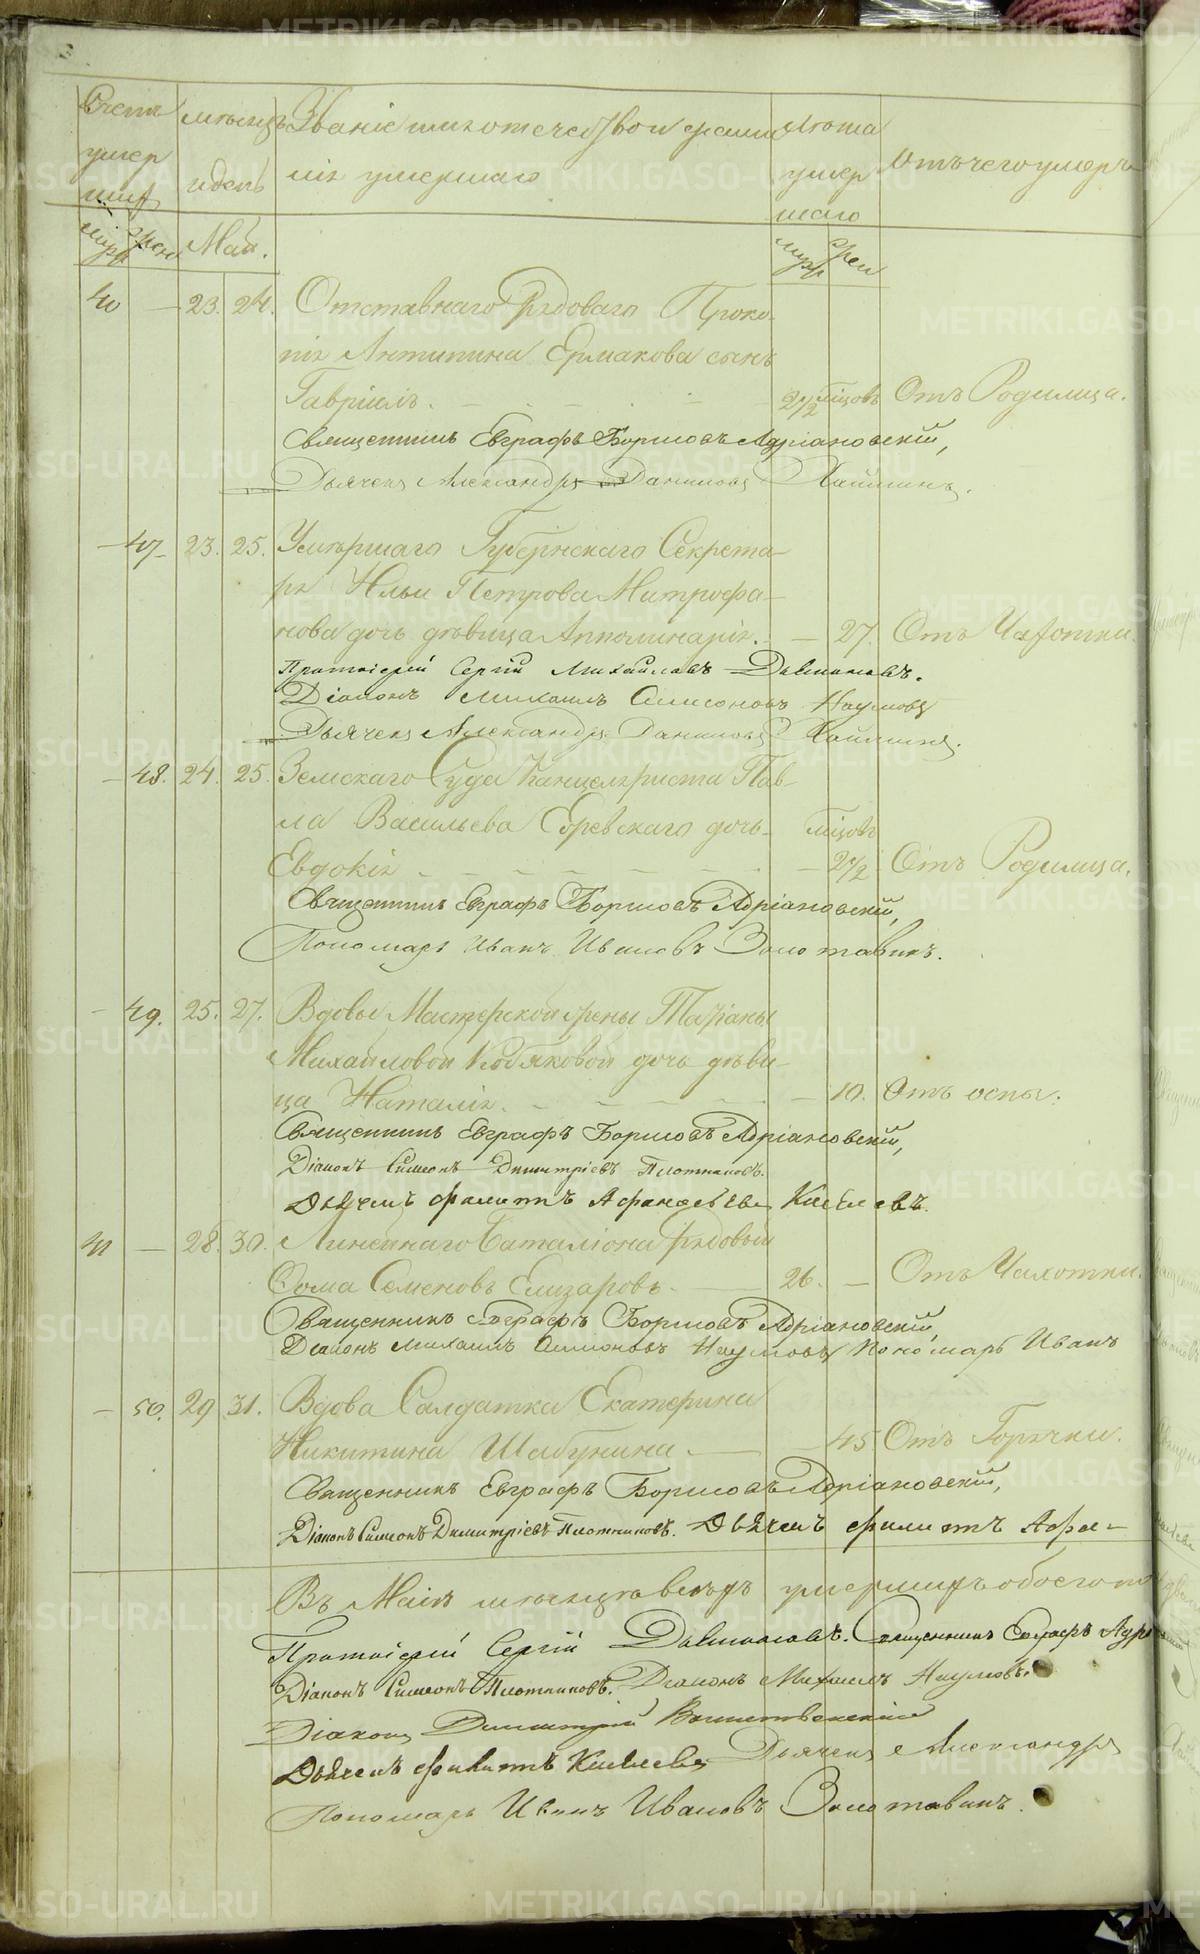 Счетъ умер шихъ
муж женс
мѣсяцъ и день
Май.
Званіе имя отечество и фами
лія умершаго
Лѣта умер шаго
муж жен
Отъ чего умеръ
40 — 23. 24. Отставнаго Рядоваго Проко-
пія Антипина Ермакова сынъ
Гавріилъ. 2 1/2 мѣсцовъ Отъ Родимца.
Священникъ Евграфъ Борисовъ Адріановскій,
Дьячекъ Александръ Даниловъ
— 47. 23. 25. Умершаго Губернскаго Секрета-
ря Ильи Петрова Митрофа-
нова дочь дѣвица Апполинарія. — 27. Отъ Чахотки.
Протоіерей Сергій Михайловъ
Діаконъ Михаилъ Симоновъ Наумовъ
Дьячекъ Александръ Даниловъ
— 48. 24. 25. Земскаго Суда Канцеляриста Пав-
ла Васильева дочь мѣсцовъ
Евдокія 2 1/2 Отъ Родимца.
Священникъ Евграфъ Борисовъ Адріановскій,
Пономарь Иванъ Ивановъ Золотавинъ.
— 49. 25. 27. Вдовы Мастерской жены Татіаны
Михайловой Кобяковой дочь дѣви-
ца Наталія. — 10. Отъ оспы.
Священникъ Евграфъ Борисовъ Адріановскій,
Діаконъ Симеонъ Димитріевъ Плотниковъ.
Дьячекъ Филиппъ Афанасьевъ Киселевъ.
41 — 28. 30. Линейнаго Баталіона Рядовый
Фома Семеновъ Елизаровъ. 26. — Отъ Чахотки.
Священникъ Евграфъ Борисовъ Адріановскій,
Діаконъ Михаилъ Симоновъ Наумовъ Пономарь Иванъ
— 50. 29 31. Вдова Солдатка Екатерина
Никитина Шабунина. — 45 Отъ Горячки.
Священникъ Евграфъ Борисовъ Адріановскій,
Діаконъ Симеонъ Димитріевъ Плотниковъ. Дьячекъ Филиппъ Афа-
Въ Маіѣ мѣсяцѣ всѣхъ умершихъ обоего по
Протоіерей Сергій Священникъ Евграфъ Адрі
Діаконъ Симеонъ Плотниковъ. Діаконъ Михаилъ Наумовъ.
Діаконъ Димитрій
Дьячекъ Филиппъ Киселевъ Дьячекъ Александръ
Пономарь Иванъ Ивановъ Золотавинъ.
METRIKI.GASO-URAL.RU